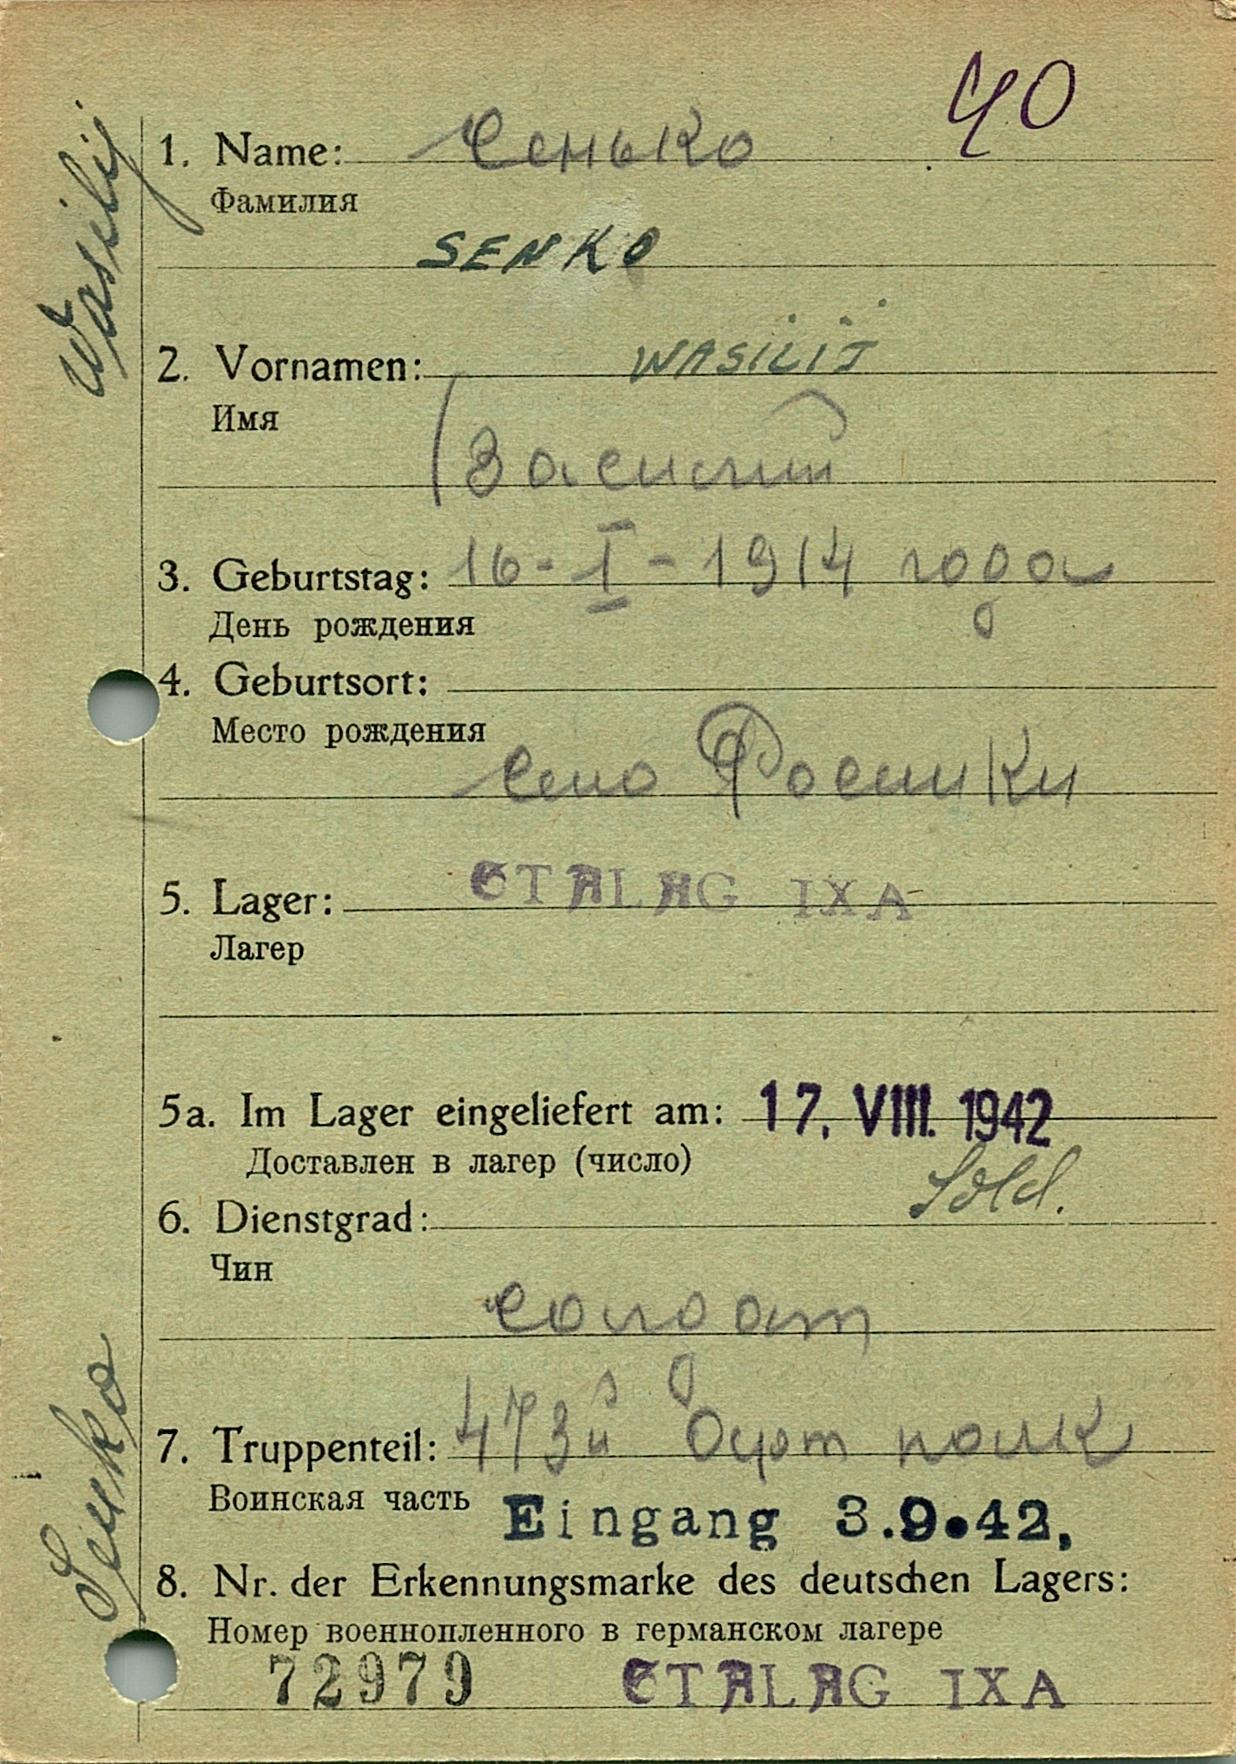 40
1. Name: Сенько
Фамилия
SENKO
2. Vornamen: WASILIJ
Имя
Василий
3. Geburtstag: 16-I-1914 года
День рождения
4. Geburtsort:
Место рождения
село
5. Lager: STALAG IXA
Лагер
5a. Im Lager eingeliefert am: 17. VIII. 1942
Доставлен в лагер (число)
Sold.
6. Dienstgrad:
Чин
солдат
7. Truppenteil: 473й полк
Воинская часть
Eingang 3.9.42,
8. Nr. der Erkennungsmarke des deutschen Lagers:
Номер военнопленного в германском лагере
72979 STALAG IXA
Senko Wasilij